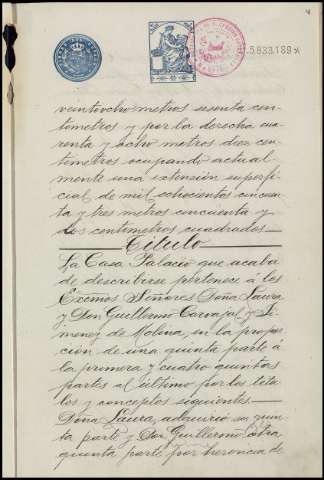 5.833.189
veintiocho metros sesenta cen-
tímetros y por la derecha cua-
renta y ocho metros diez cen-
tímetros ocupando actual
mente una extensión superfi-
cial de mil ochocientos cincuen-
ta y tres metros cincuenta y
dos centímetros cuadrados
Título
La Casa Palacio que acaba
de describirse pertenece á los
Excmos Señores Doña Laura
y Don Guillermo Carvajal y Ji-
menez de Molina, en la propor-
ción de una quinta parte á
la primera y cuatro quintas
partes al último por los títu-
los y conceptos siguientes
Doña Laura, adquirió su quin-
ta parte y Don Guillermo otra
quinta parte por herencia de